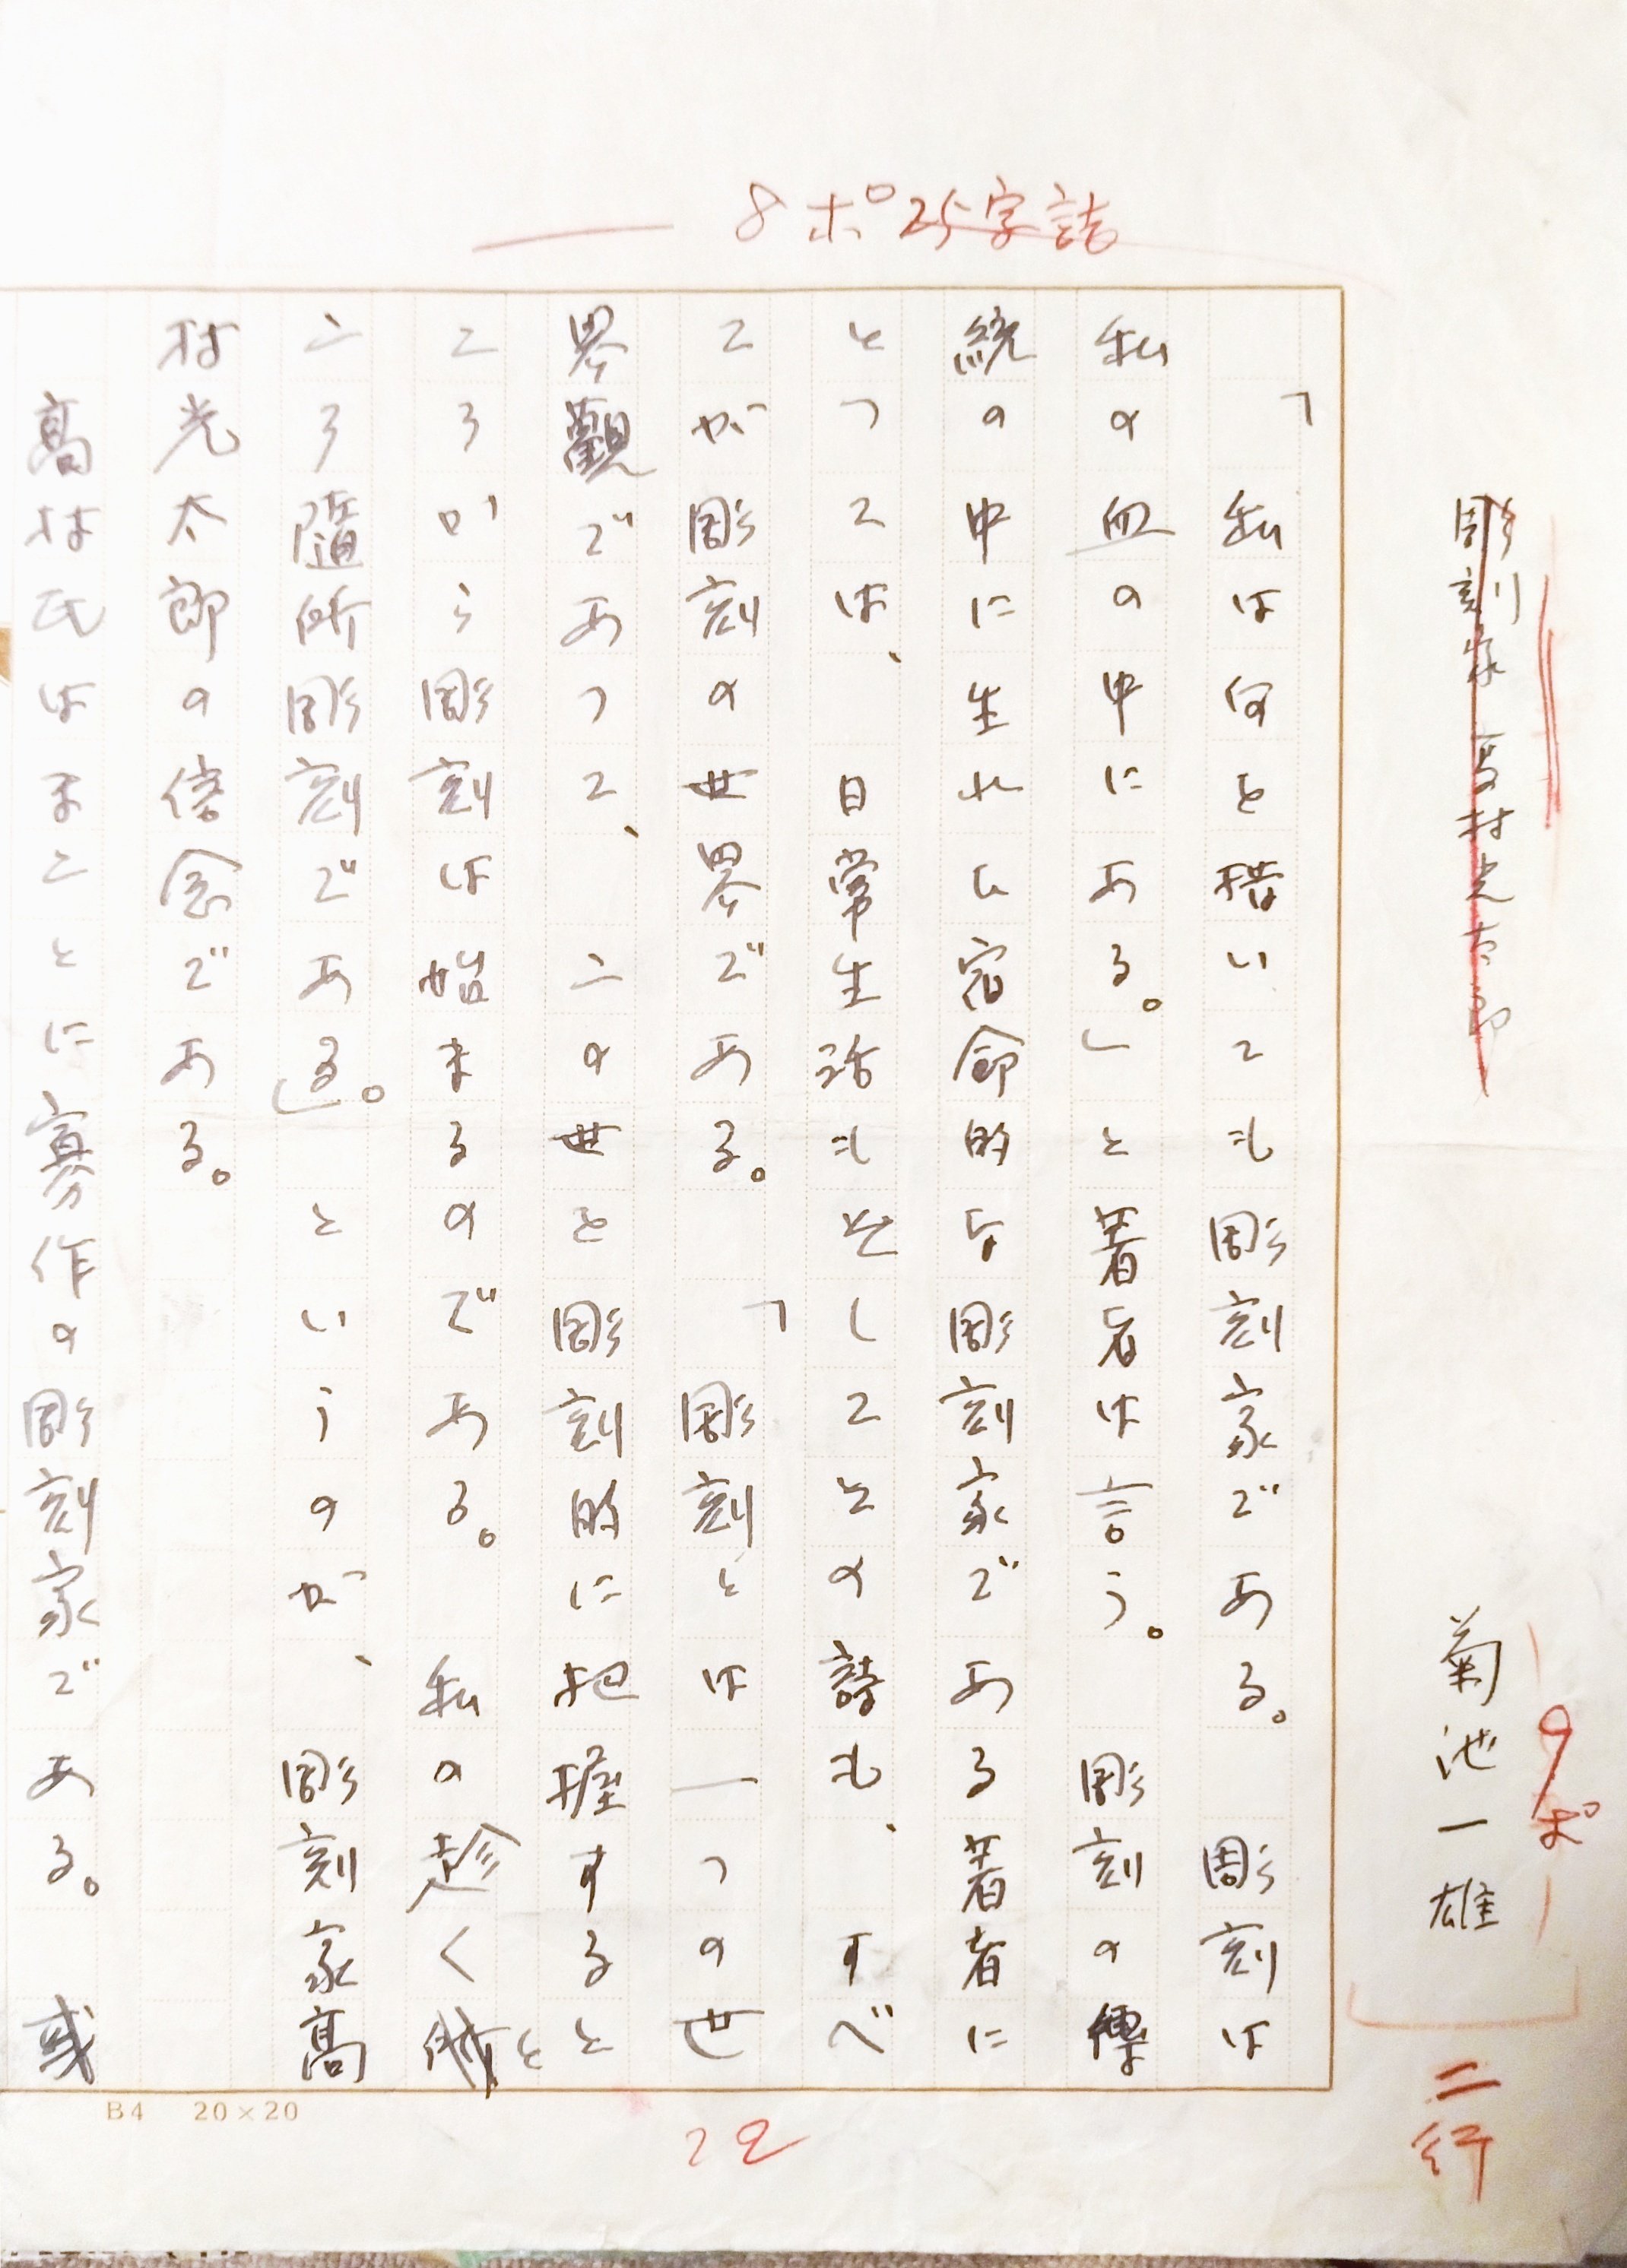 8ポ25字詰
彫刻家高村光太郎
菊池一雄
9ポ
二行
「私は何を措いても彫刻家である。彫刻は
私の血の中にある。」と著者は言う。彫刻の傳
統の中に生れし宿命的な彫刻家である著者に
とつては、日常生活もそしてその詩も、すべ
てが彫刻の世界である。「彫刻とは一つの世
界觀であつて、この世を彫刻的に把握すると
ころから彫刻は始まるのである。私の赴くと
ころ隨所彫刻である。」というのが、彫刻家高
村光太郎の信念である。
高村氏はまことに寡作の彫刻家である。或
B4 20×20
22